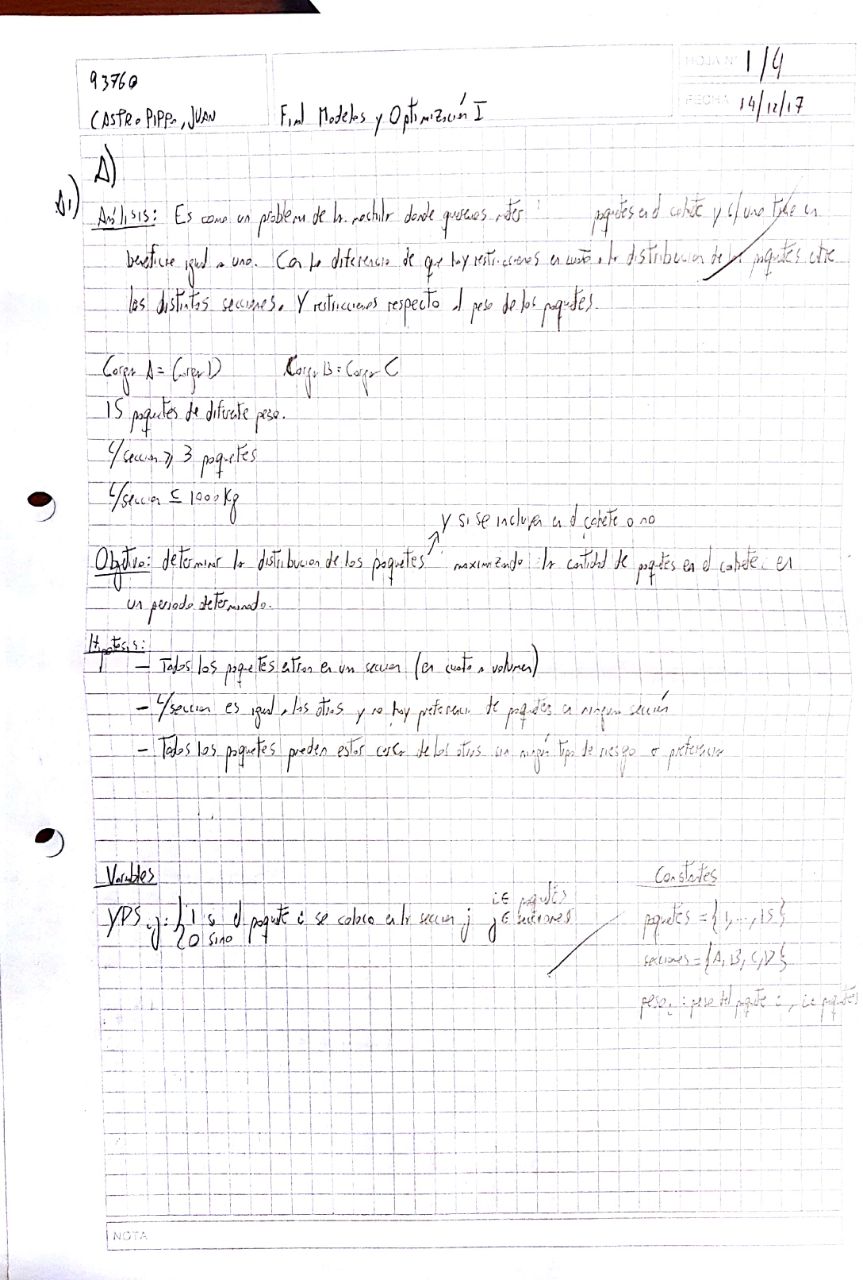 93760
CASTRO PIPPO, JUAN
Final Modelos y Optimización I
HOJA Nº 1/4
FECHA 14/12/17
A)
A1)
Análisis: Es como un problema de la mochila donde queremos meter paquetes en el cohete y c/uno tiene un
beneficio igual a uno. Con la diferencia de que hay restricciones en cuanto a la distribución de los paquetes entre
las distintas secciones. Y restricciones respecto al peso de los paquetes.
Carga A = Carga D Carga B = Carga C
15 paquetes de diferente peso.
c/seccion ≥ 3 paquetes
c/seccion ≤ 1000 Kg
y si se incluyen en el cohete o no
Objetivo: determinar la distribucion de los paquetes maximizando la cantidad de paquetes en el cohete en
un periodo determinado.
Hipotesis:
- Todos los paquetes entran en un seccion (en cuanto a volumen)
- c/seccion es igual a las otras y no hay preferencia de paquetes en ninguna sección
- Todos los paquetes pueden estar cerca de los otros sin ningún tipo de riesgo o preferencia
Variables
Constantes
YPSij: { 1 si el paquete i se coloca en la seccion j i ∈ paquetes
0 sino j ∈ secciones
paquetes = {1,...,15}
secciones = {A, B, C, D}
pesoi : peso del paquete i, i ∈ paquetes
NOTA